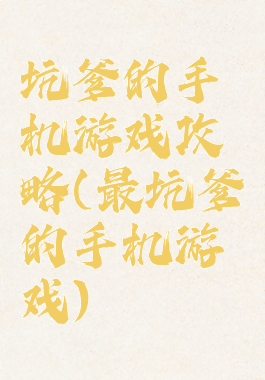 坑爹的手
机游戏攻
略(最坑爹
的手机游
戏)